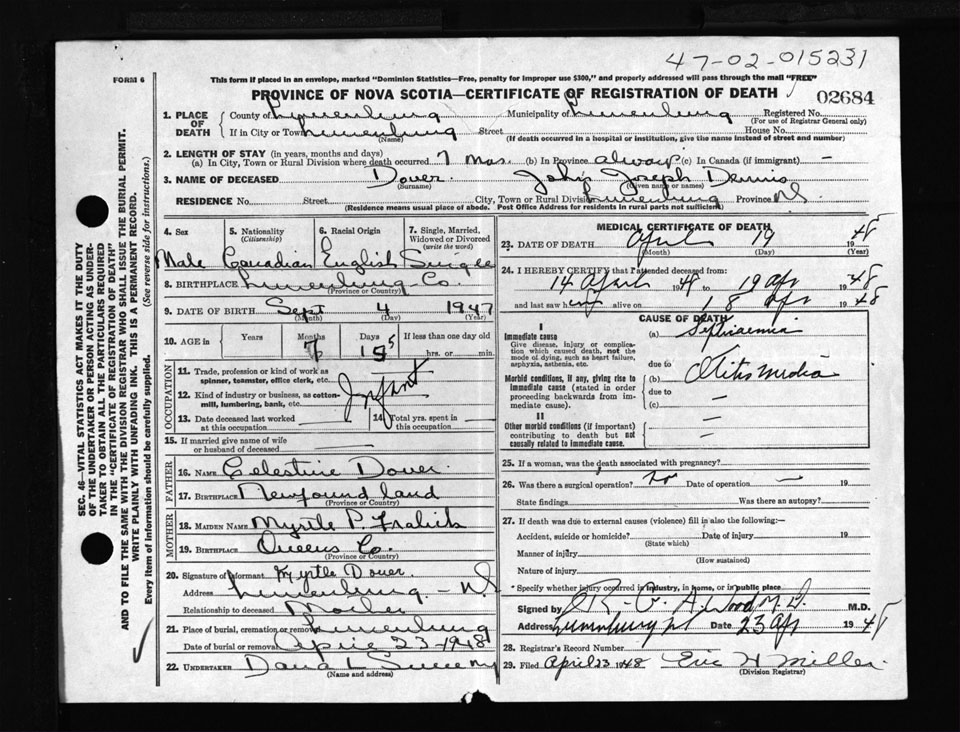 47-02-015231
FORM 6
This form if placed in an envelope, marked "Dominion Statistics—Free, penalty for improper use $300," and properly addressed will pass through the mail "FREE"
PROVINCE OF NOVA SCOTIA—CERTIFICATE OF REGISTRATION OF DEATH
02684
1. PLACE OF DEATH County of Lunenburg Municipality of Lunenburg Registered No.
(For use of Registrar General only)
If in City or Town Lunenburg Street House No.
(Name) (If death occurred in a hospital or institution, give the name instead of street and number)
2. LENGTH OF STAY (in years, months and days)
(a) In City, Town or Rural Division where death occurred 7 mos. (b) In Province always (c) In Canada (if immigrant) —
3. NAME OF DECEASED Dover John Joseph Dennis
(Surname) (Given name or names)
RESIDENCE No. Street City, Town or Rural Division Lunenburg Province NS
(Residence means usual place of abode. Post Office Address for residents in rural parts not sufficient)
4. Sex 5. Nationality (Citizenship) 6. Racial Origin 7. Single, Married, Widowed or Divorced (write the word)
Male Canadian English Single
8. BIRTHPLACE Lunenburg Co.
(Province or Country)
9. DATE OF BIRTH Sept 4 1947
(Month) (Day) (Year)
10. AGE in Years Months Days If less than one day old
7 15 hrs. or min.
OCCUPATION
11. Trade, profession or kind of work as spinner, teamster, office clerk, etc.
Infant
12. Kind of industry or business, as cotton-mill, lumbering, bank, etc.
13. Date deceased last worked at this occupation 14. Total yrs. spent in this occupation
15. If married give name of wife or husband of deceased —
FATHER
16. NAME Celestine Dover
17. BIRTHPLACE Newfoundland
(Province or Country)
MOTHER
18. MAIDEN NAME Myrtle P.
19. BIRTHPLACE Queens Co.
(Province or Country)
20. Signature of informant Myrtle Dover
Address Lunenburg - NS
Relationship to deceased Mother
21. Place of burial, cremation or removal Lunenburg
Date of burial or removal April 23-1948
22. UNDERTAKER Dana L Sweeny
(Name and address)
MEDICAL CERTIFICATE OF DEATH
23. DATE OF DEATH April 19 1948
(Month) (Day)
24. I HEREBY CERTIFY that I attended deceased from:
14 April 1948 to 19 Apr 1948
and last saw him alive on 18 Apr 1948
CAUSE OF DEATH
I
Immediate cause (a) Septicaemia
Give disease, injury or complication which caused death, not the mode of dying, such as heart failure, asphyxia, asthenia, etc.
due to
Morbid conditions, if any, giving rise to immediate cause (stated in order proceeding backwards from immediate cause). (b) Otitis media
due to
(c) —
II
Other morbid conditions (if important) contributing to death but not causally related to immediate cause. —
25. If a woman, was the death associated with pregnancy?
26. Was there a surgical operation? no Date of operation — 19
State findings Was there an autopsy?
27. If death was due to external causes (violence) fill in also the following:—
Accident, suicide or homicide? Date of injury 19
(State which)
Manner of injury
(How sustained)
Nature of injury
Specify whether injury occurred in industry, in home, or in public place
Signed by R. G. A. Wood M.D. M.D.
Address Lunenburg NS Date 23 Apr 1948
28. Registrar's Record Number
29. Filed April 23 1948 Eric H Miller
(Division Registrar)
SEC. 46—VITAL STATISTICS ACT MAKES IT THE DUTY
OF THE UNDERTAKER OR PERSON ACTING AS UNDER-
TAKER TO OBTAIN ALL THE PARTICULARS REQUIRED
IN THE "CERTIFICATE OF REGISTRATION OF DEATH"
AND TO FILE THE SAME WITH THE DIVISION REGISTRAR WHO SHALL ISSUE THE BURIAL PERMIT.
WRITE PLAINLY WITH UNFADING INK. THIS IS A PERMANENT RECORD.
Every item of information should be carefully supplied. (See reverse side for instructions.)